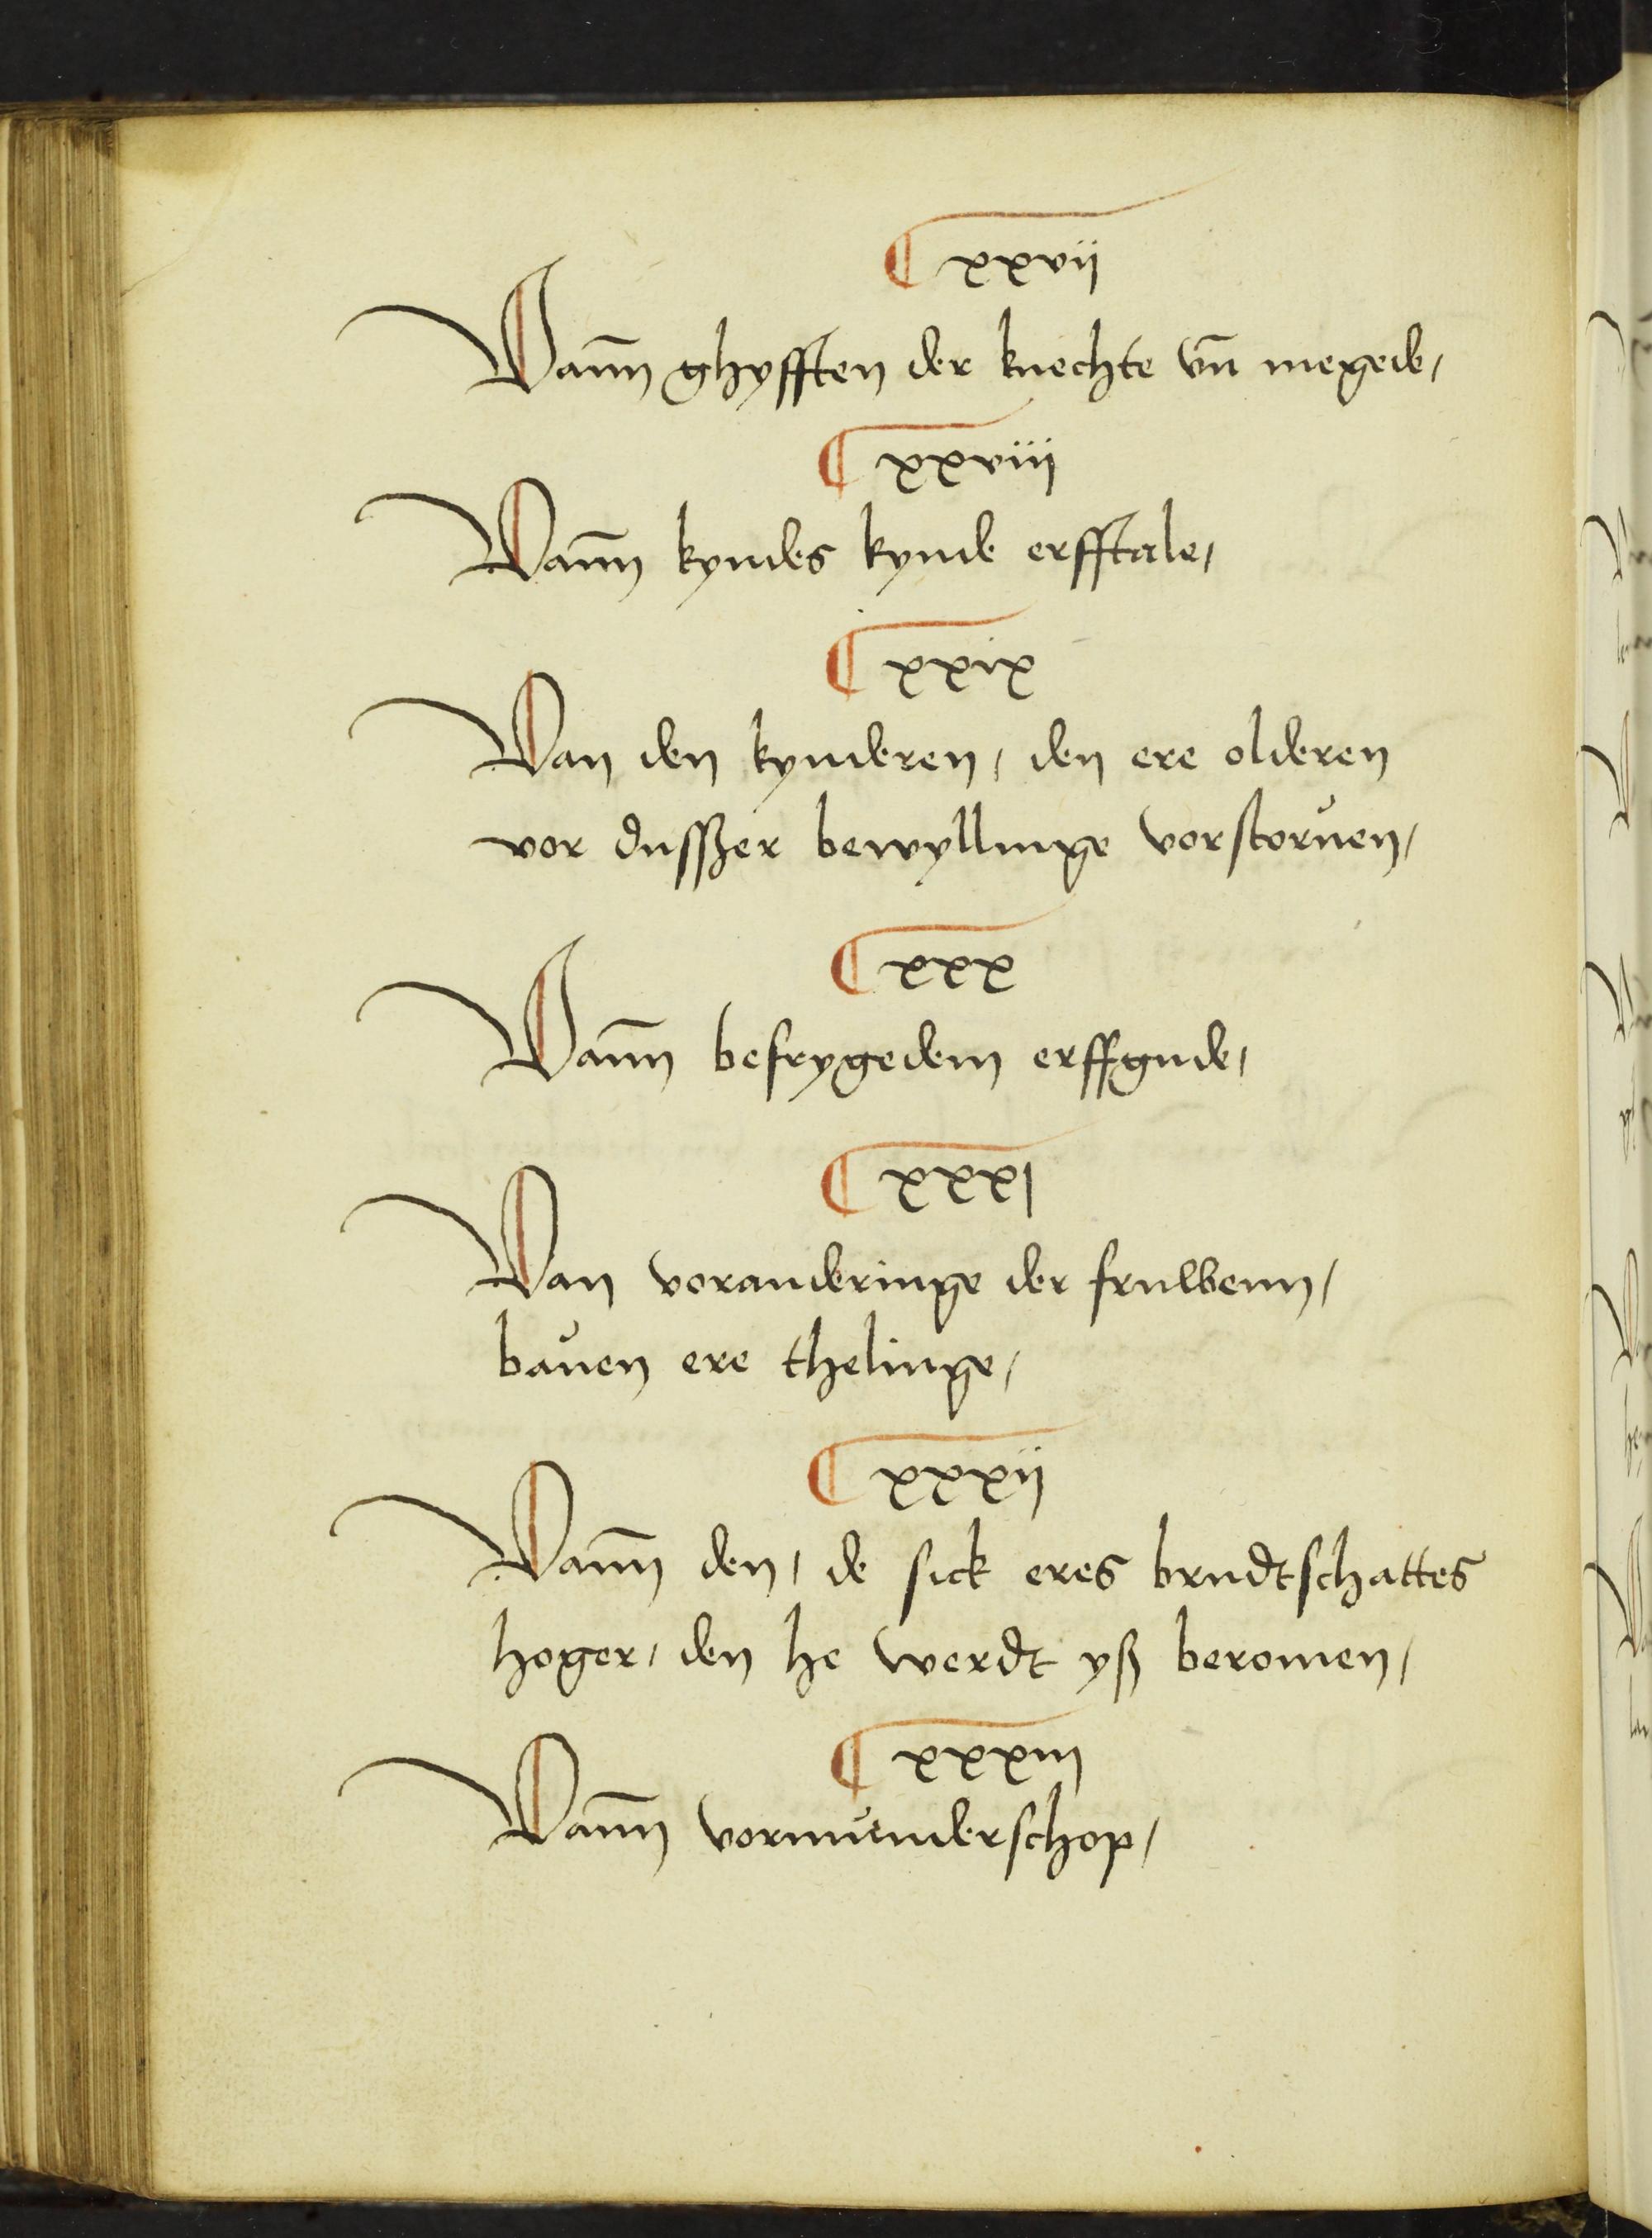 ¶ xxvii
Vann̄ ghyfften der knechte vn̄ megede/
¶ xxviii
Vann̄ kyndes kynde erfftale/
¶ xxix
Van den kynderen/ den ere olderen
vor dusßer bewyllinge vorstoruen/
¶ xxx
Vann̄ befrygedem erffgude/
¶ xxxi
Van voranderinge der fruwenn/
bauen ere thelinge/
¶ xxxii
Vann̄ den/ de sick eres brudtschattes
hoger/ den he werdt yß beromen/
¶ xxxiii
Vann̄ vormunderschop/